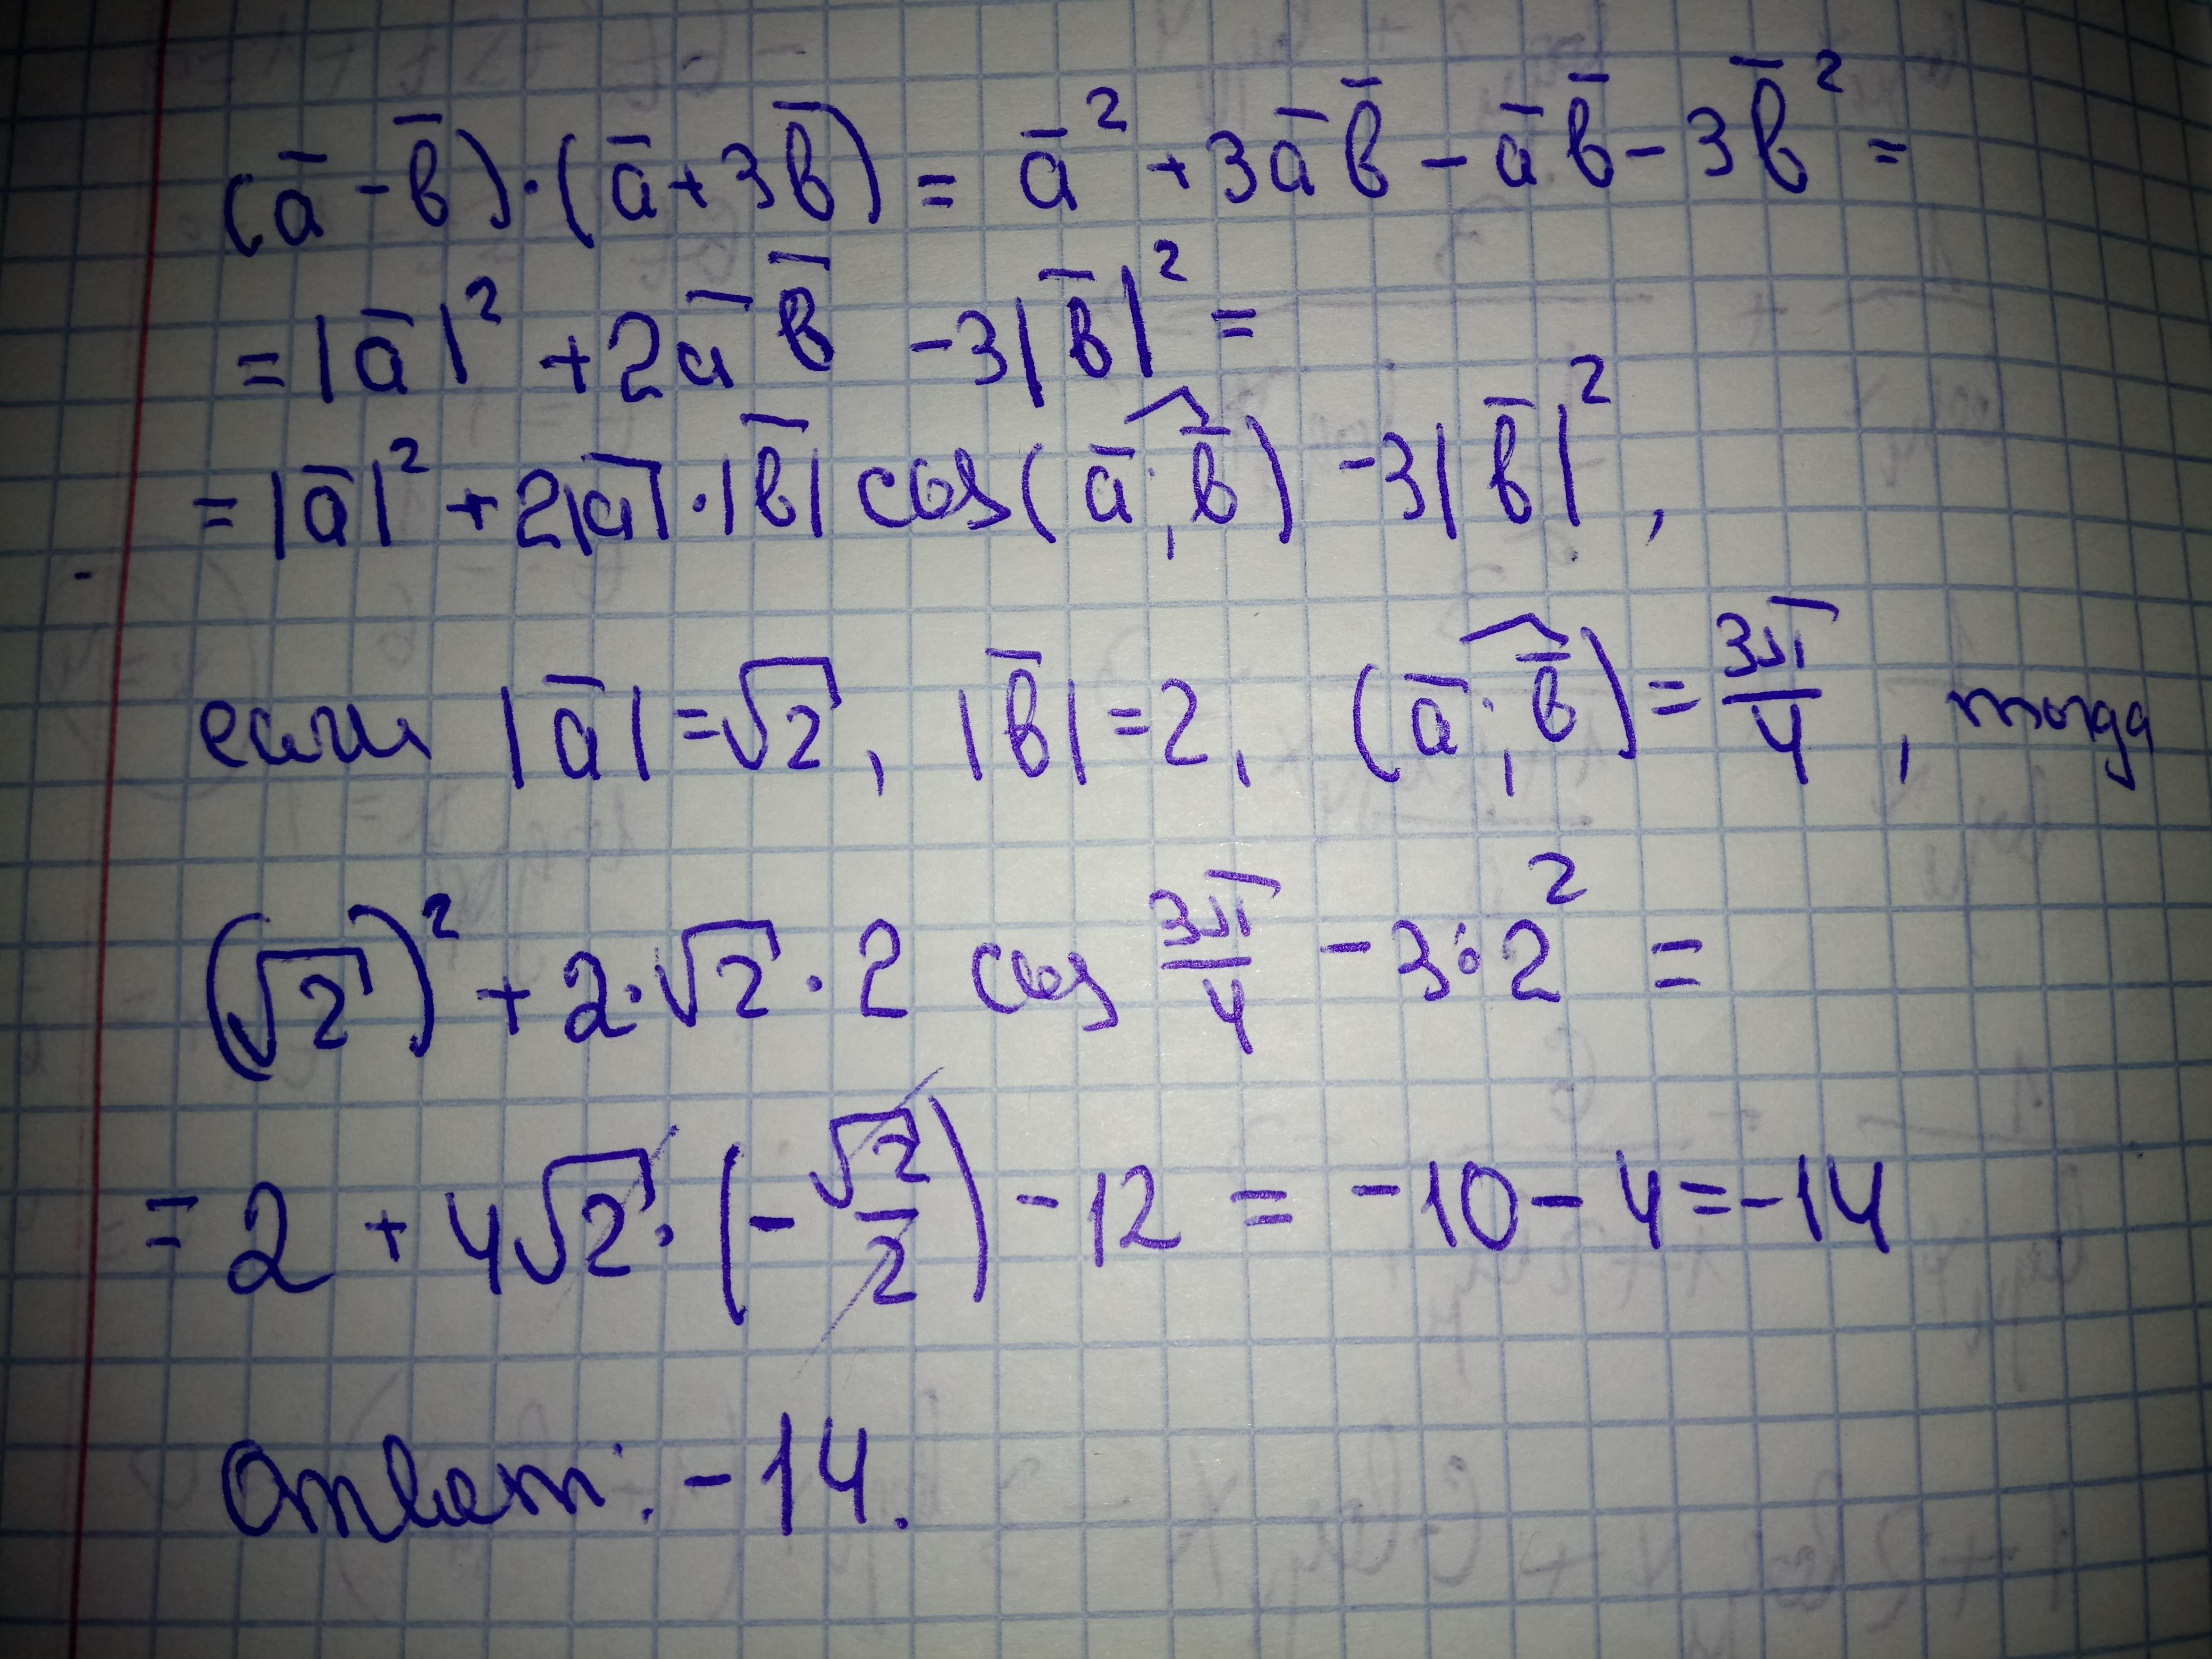 (a̅ - b̅)·(a̅ + 3b̅) = a̅² + 3a̅b̅ - a̅b̅ - 3b̅² =
= |a̅|² + 2a̅b̅ - 3|b̅|² =
= |a̅|² + 2|a̅|·|b̅| cos(a̅,^b̅) - 3|b̅|²,
если |a̅| = √2, |b̅| = 2, (a̅,^b̅) = 3π/4, тогда
(√2)² + 2·√2·2 cos 3π/4 - 3·2² =
= 2 + 4√2·(-√2/2) - 12 = -10 - 4 = -14
Ответ: -14.